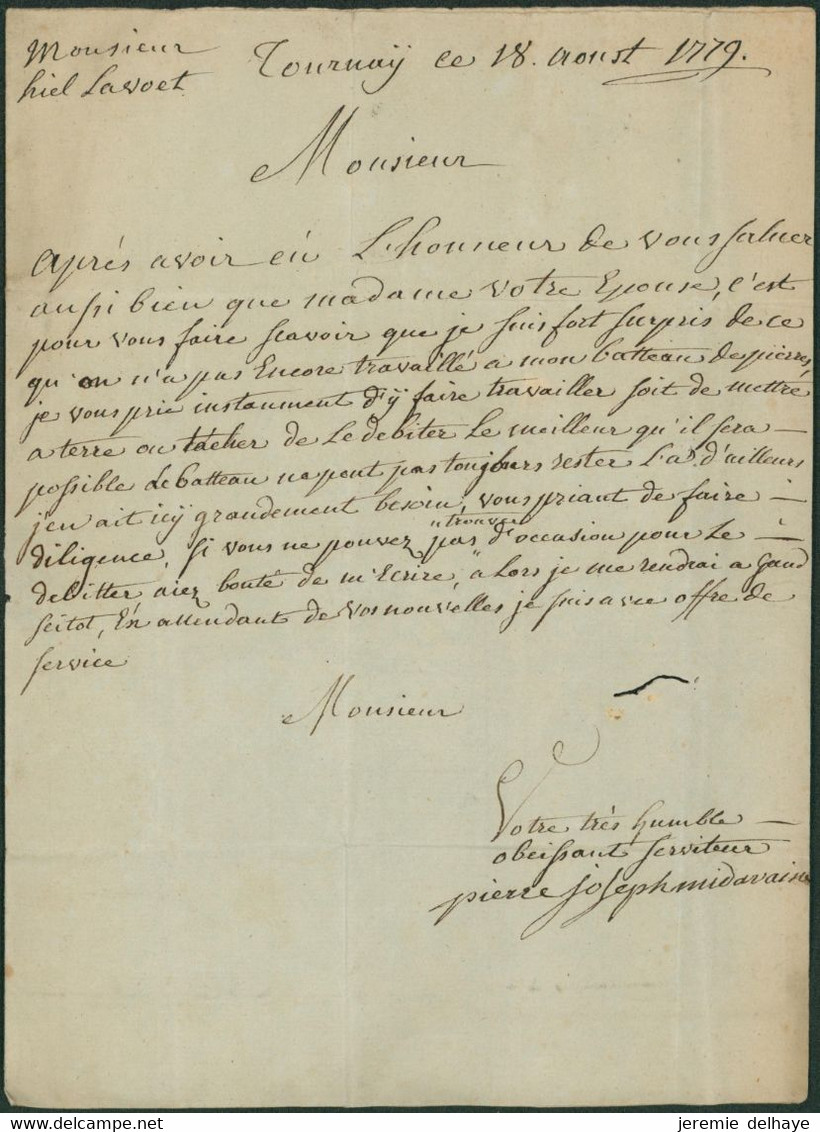 Monsieur
hiel Lavoet
Tournaÿ ce 18. aoust 1779.
Monsieur
après avoir eû L'honneur de vous saluer
aussi bien que madame votre Epouse, c'est
pour vous faire scavoir que je suis fort surpris de ce
qu'on n'a pas Encore travaillé a mon batteau de pierres,
je vous prie instamment d'ÿ faire travailler soit de mettre
a terre ou tâcher de Le debiter Le meilleur qu'il sera —
possible Le batteau ne peut pas toujours rester La d'ailleurs
j'en ait icÿ grandement besoin, vous priant de faire —
diligence, Si vous ne pouvez pas trouver d'occasion pour Le —
debitter aiez bonté de m'Ecrire, a Lors je me rendrai a Gand
seitot, En attendant de vos nouvelles je suis avec offre de
service
Monsieur
Votre très humble —
obeissant serviteur
pierre joseph midavaine
jeremie delhaye